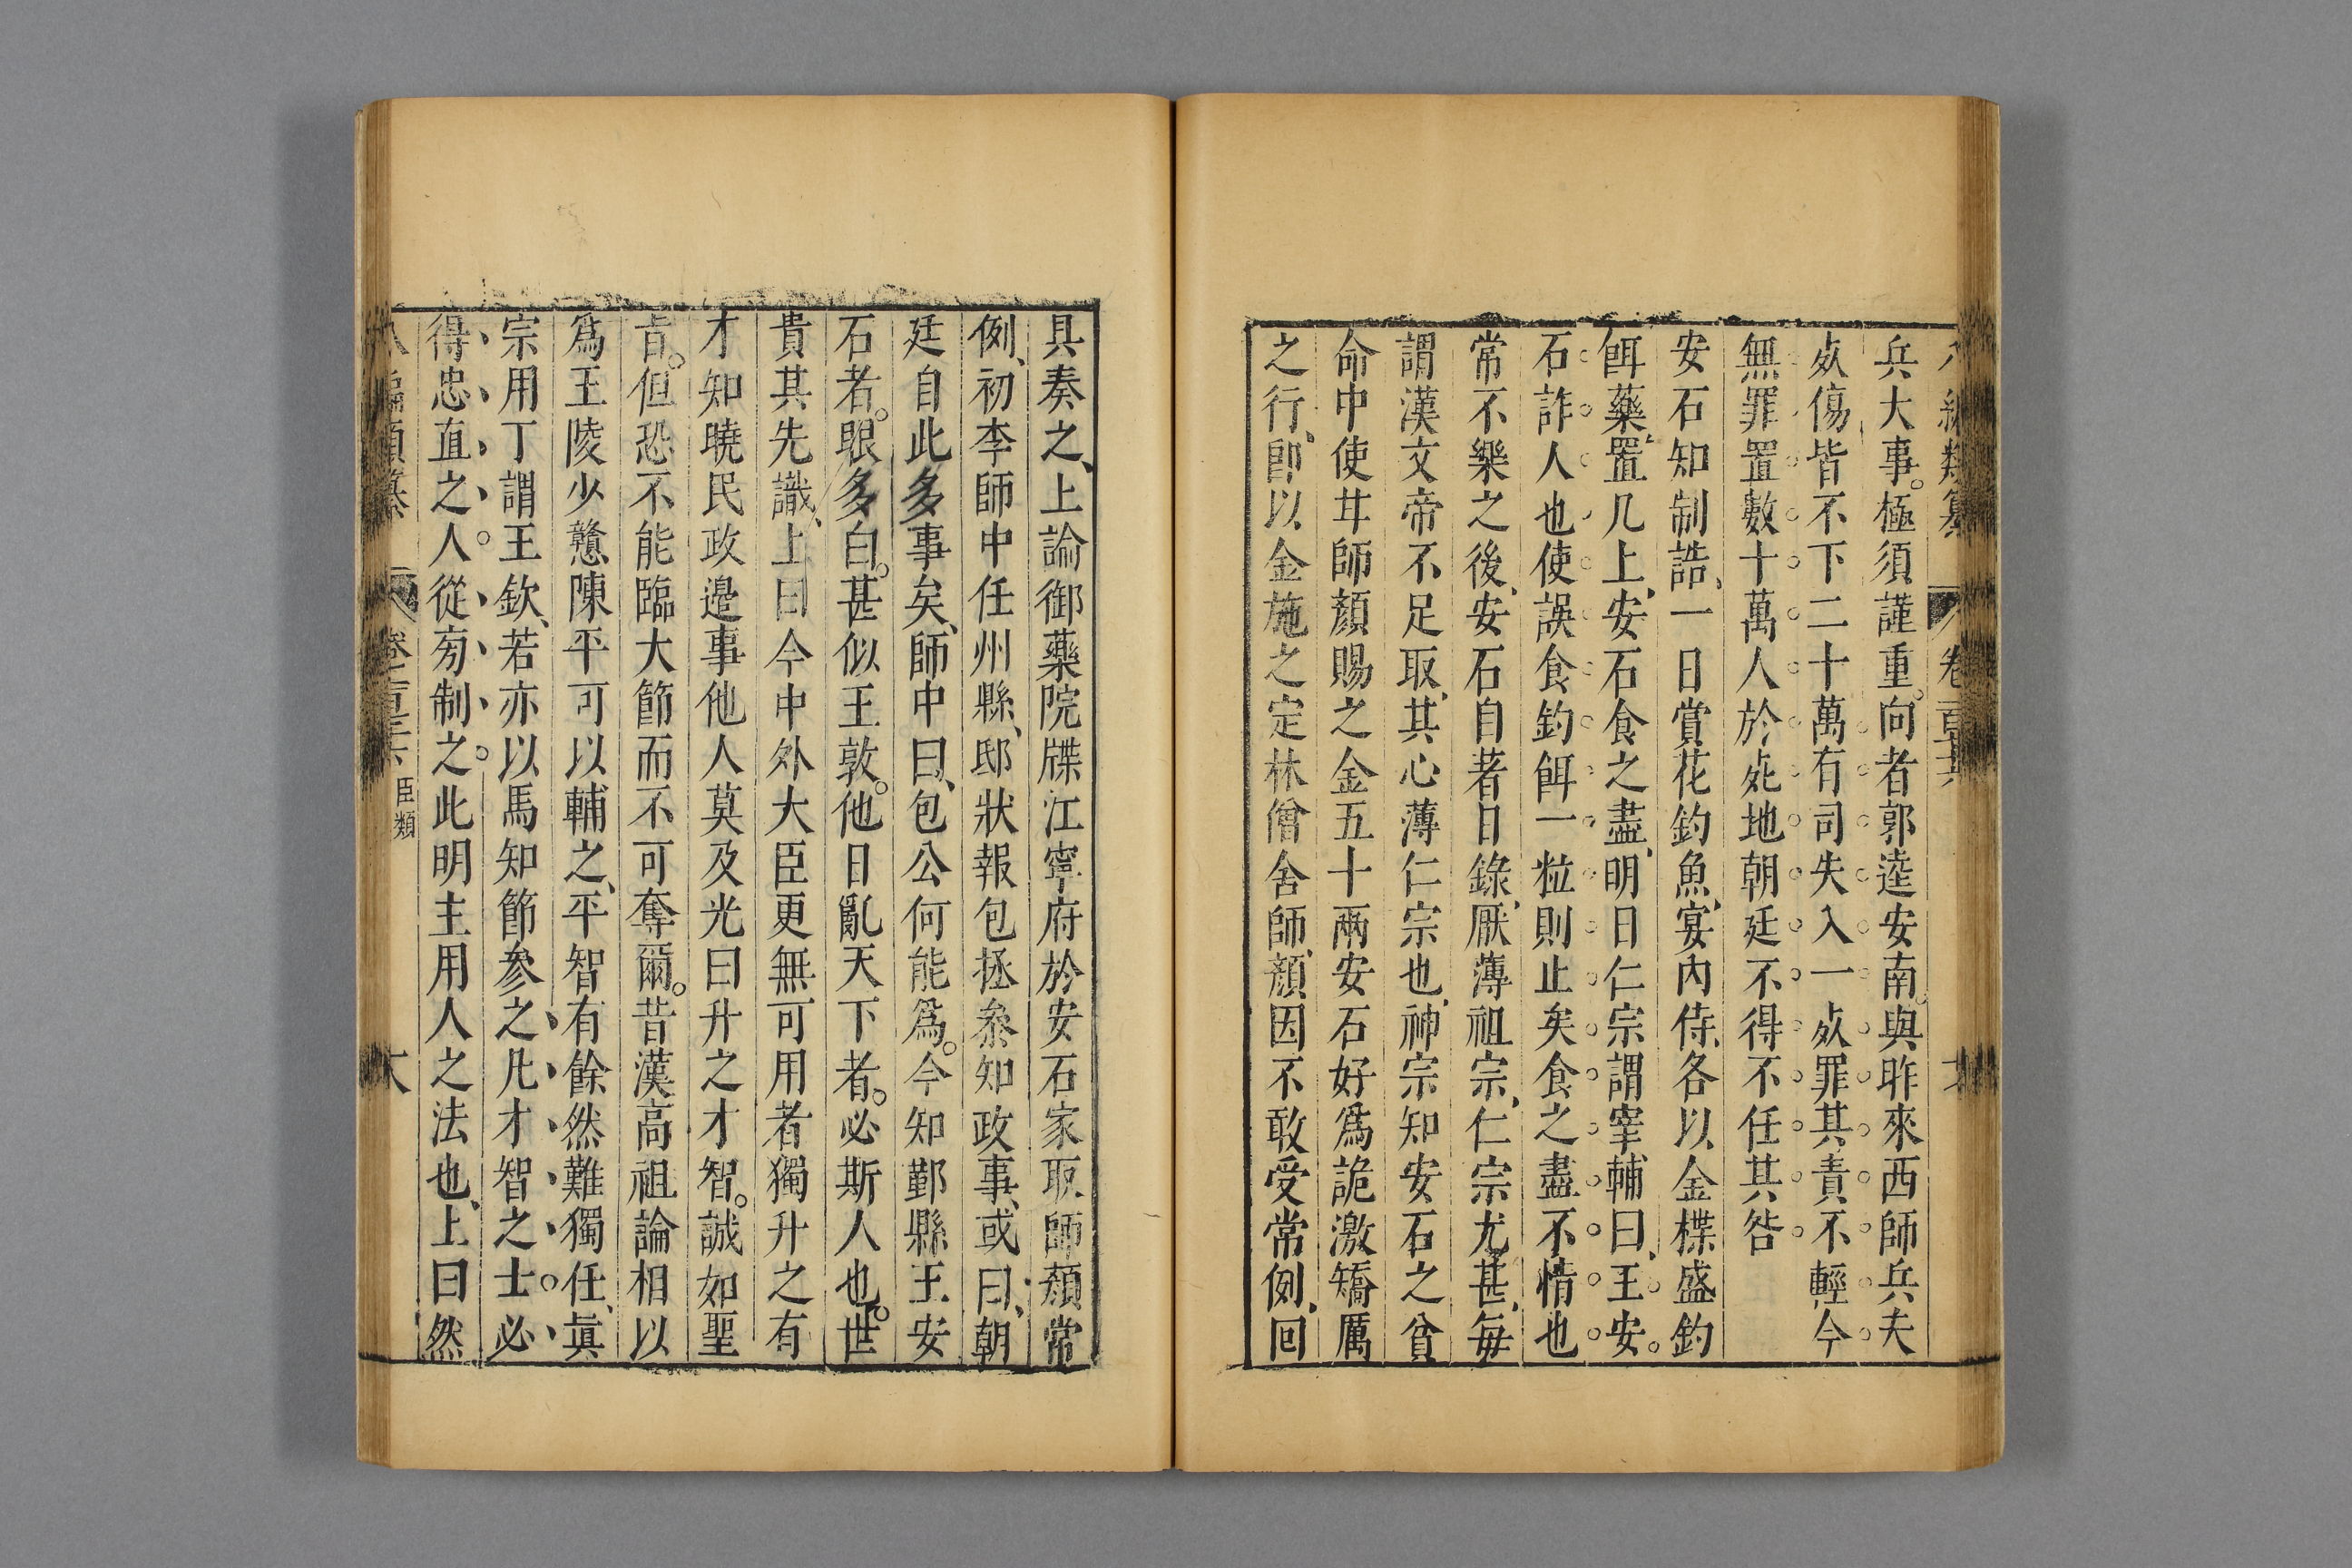 兵大事極須謹重向者郭逵安南與昨來西師兵夫
㱔傷皆不下二十萬有司失入一㱔罪其責不輕今
無罪置數十萬人於死地朝廷不得不任其咎
安石知制誥一日賞花釣魚宴內侍各以金楪盛釣
餌藥置几上安石食之盡明日仁宗謂宰輔曰王安
石詐人也使誤食釣餌一粒則止矣食之盡不情也
常不樂之後安石自著日錄厭薄祖宗仁宗尤甚每
謂漢文帝不足取其心薄仁宗也神宗知安石之貧
命中使甘師顏賜之金五十兩安石好爲詭激矯厲
之行卽以金施之定林僧舍師顏因不敢受常例回
具奏之上諭御藥院牒江寧府於安石家取師顏常
例初李師中任州縣邸狀報包拯叅知政事或曰朝
廷自此多事矣師中曰包公何能爲今知鄞縣王安
石者眼多白甚似王敦他日亂天下者必斯人也世
貴其先識上曰今中外大臣更無可用者獨升之有
才知曉民政邉事他人莫及光曰升之才智誠如聖
旨但恐不能臨大節而不可奪爾昔漢高祖論相以
爲王陵少戇陳平可以輔之平智有餘然難獨任眞
宗用丁謂王欽若亦以馬知節參之凡才智之士必
得忠直之人從旁制之此明主用人之法也上曰然
八編類纂 卷 臣類